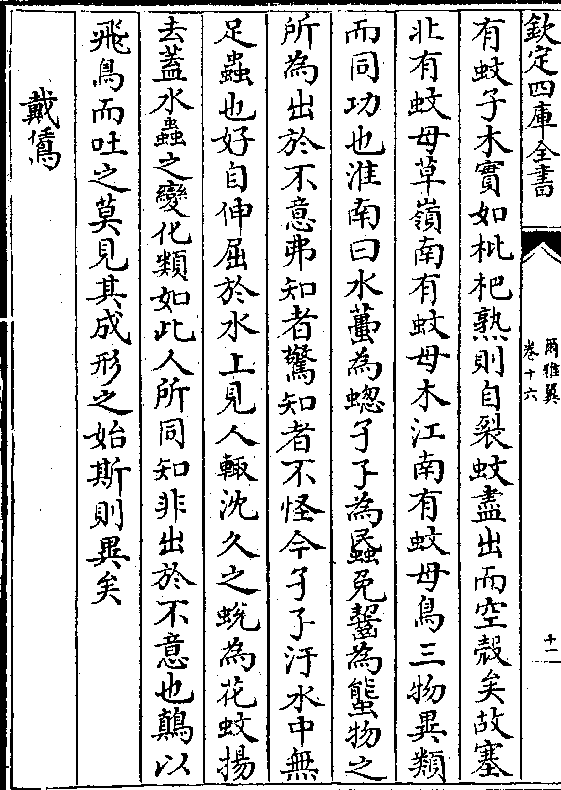 欽定四庫全書
爾雅翼
卷十六
十二
有蚊子木實如枇杷熟則自裂蚊盡出而空殼矣故塞
北有蚊母草嶺南有蚊母木江南有蚊母鳥三物異類
而同功也淮南曰水蠆為蟌孑孒為䘇兔齧為螚物之
所為出於不意弗知者驚知者不怪今孑孒汙水中無
足蟲也好自伸屈於水上見人輒沈久之蛻為花蚊揚
去蓋水蟲之變化類如此人所同知非出於不意也鷏以
飛鳥而吐之莫見其成形之始斯則異矣
戴鵀